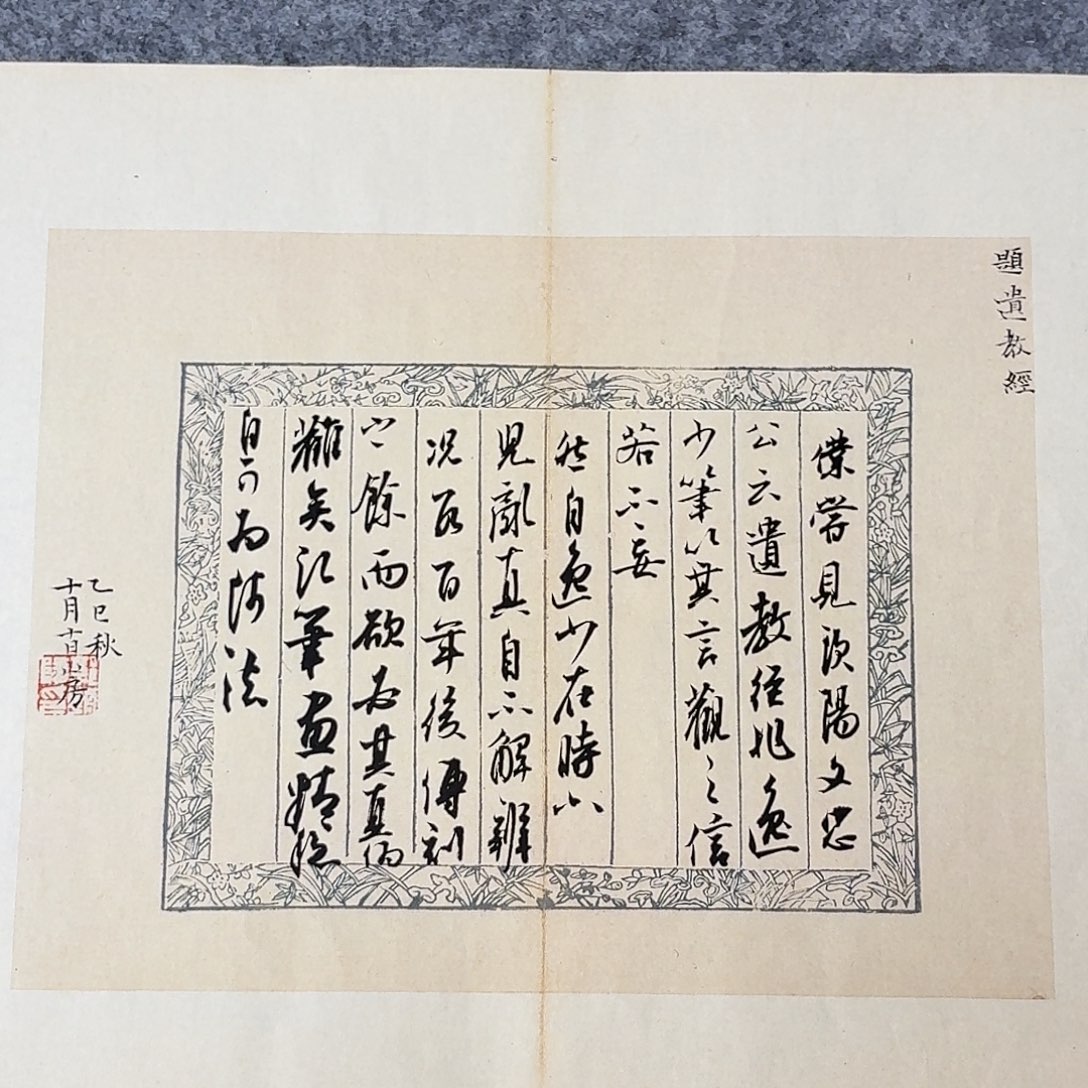 題遺教經
僕嘗見歐陽文忠
公云遺教經非逸
少筆以其言觀之信
若不妄
然自逸少在時小
兒亂真自不解辨
況數百年後傳刻
之餘而欲必其真偽
難矣顧筆畫精穩
自可為師法
乙巳秋
十月